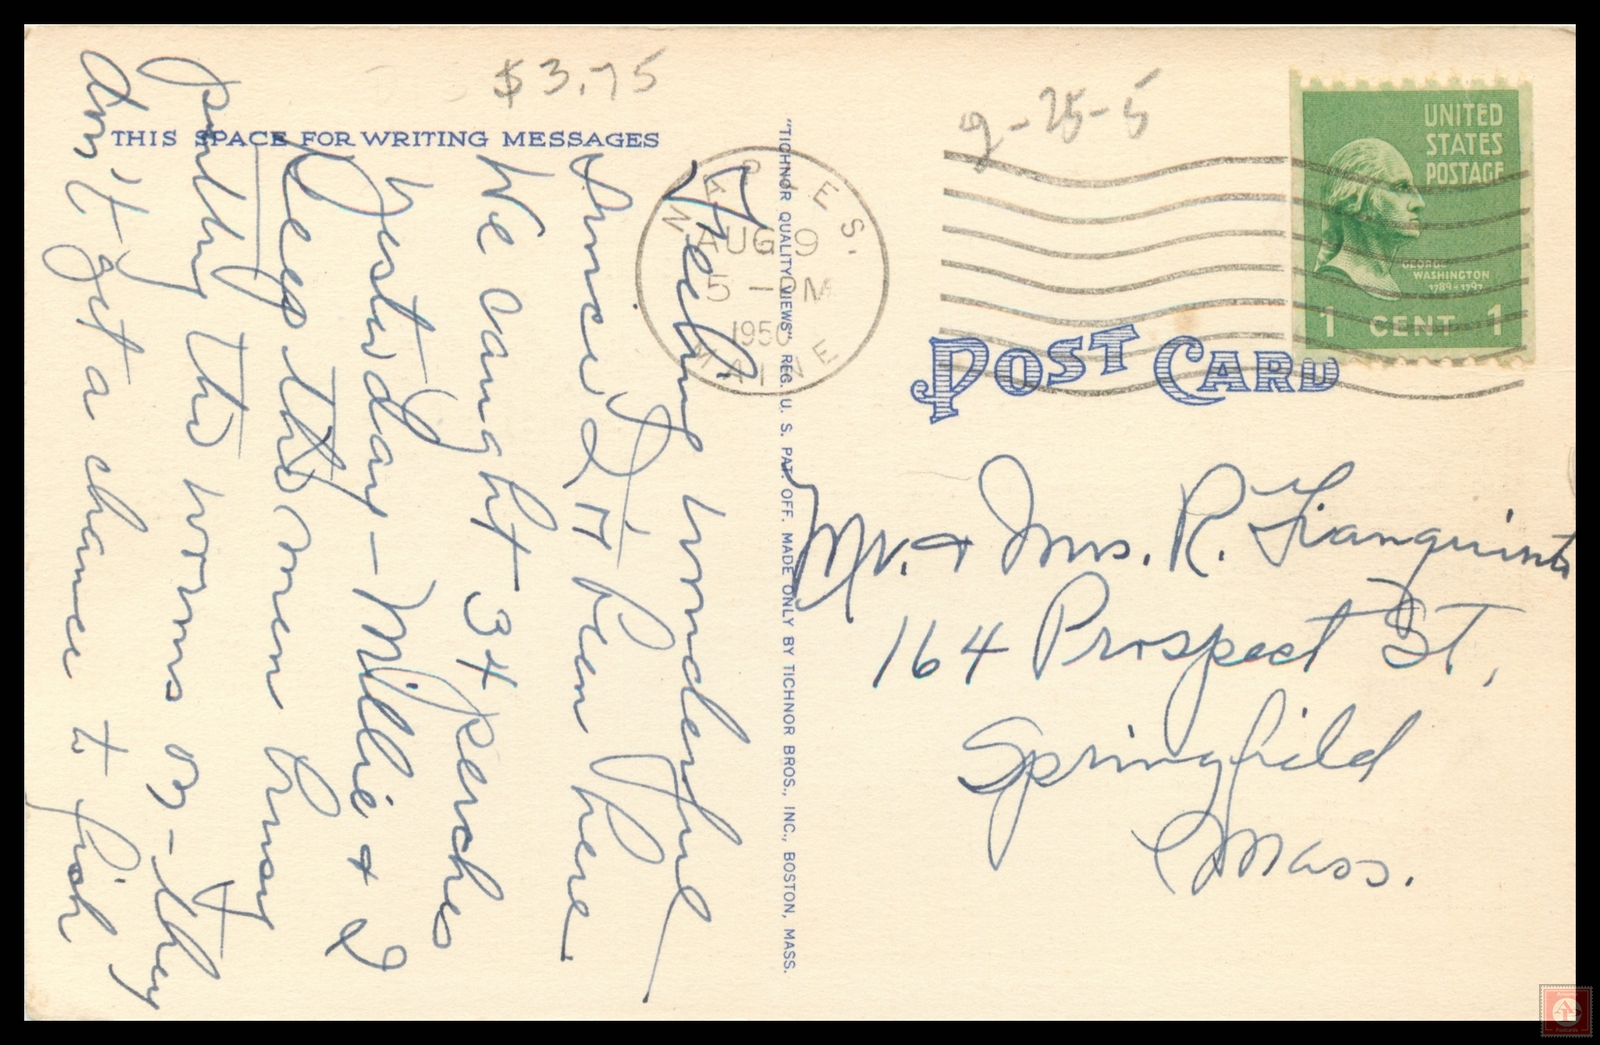 $3.75
2-25-5
THIS SPACE FOR WRITING MESSAGES
UNITED
STATES
POSTAGE
GEORGE
WASHINGTON
1789-1797
1 CENT 1
NAPLES.
AUG 9
5 - PM
1950
MAINE
POST CARD
"TICHNOR QUALITY VIEWS" REG. U. S. PAT. OFF. MADE ONLY BY TICHNOR BROS., INC., BOSTON, MASS.
Feeling wonderful
since I've been here
We caught 34 perches
yesterday - Millie & I
keep the men busy
putting the worms on - they
don't get a chance to fish
Mr. & Mrs. R.
164 Prospect St,
Springfield
Mass.